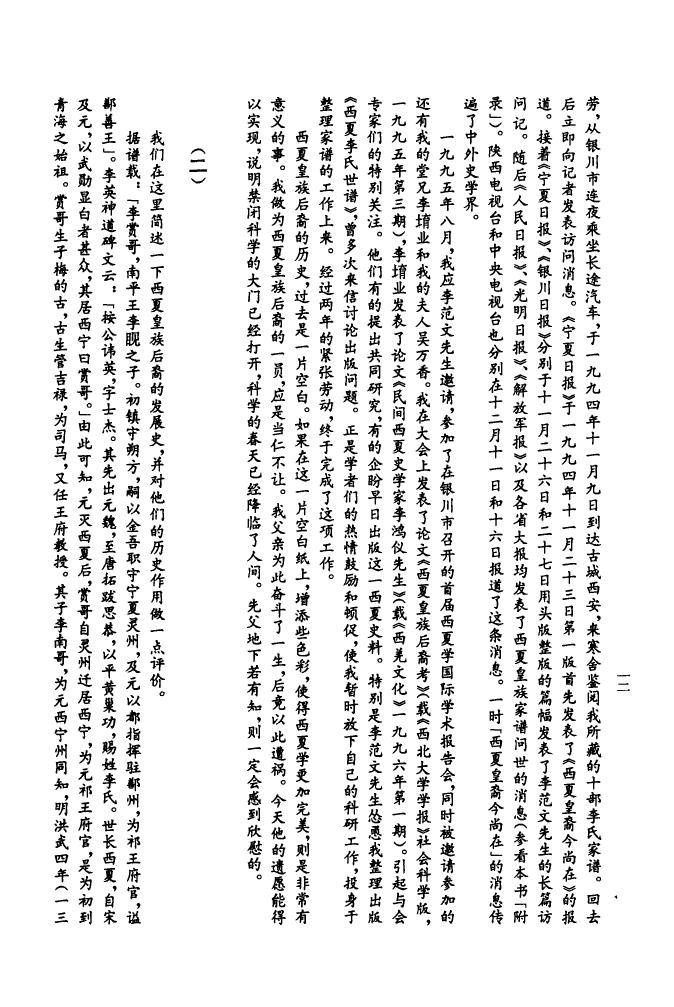 一二
劳，从银川市连夜乘坐长途汽车，于一九九四年十一月九日到达古城西安，来寒舍鉴阅我所藏的十部李氏家谱。回去
后立即向记者发表访问消息。《宁夏日报》于一九九四年十一月二十三日第一版首先发表了《西夏皇裔今尚在》的报
道。接着《宁夏日报》、《银川日报》分别于十一月二十六日和二十七日用头版整版的篇幅发表了李范文先生的长篇访
问记。随后《人民日报》、《光明日报》、《解放军报》以及各省大报均发表了西夏皇族家谱问世的消息（参看本书「附
录」）。陕西电视台和中央电视台也分别在十二月十一日和十六日报道了这条消息。一时「西夏皇裔今尚在」的消息传
遍了中外史学界。
一九九五年八月，我应李范文先生邀请，参加了在银川市召开的首届西夏学国际学术报告会，同时被邀请参加的
还有我的堂兄李堉业和我的夫人吴万香。我在大会上发表了论文《西夏皇族后裔考》（载《西北大学学报》社会科学版，
一九九五年第三期），李堉业发表了论文《民间西夏史学家李鸿仪先生》（载《西羌文化》一九九六年第一期）。引起与会
专家们的特别关注。他们有的提出共同研究，有的企盼早日出版这一西夏史料。特别是李范文先生怂恿我整理出版
《西夏李氏世谱》，曾多次来信讨论出版问题。正是学者们的热情鼓励和顿促，使我暂时放下自己的科研工作，投身于
整理家谱的工作上来。经过两年的紧张劳动，终于完成了这项工作。
西夏皇族后裔的历史，过去是一片空白。如果在这一片空白纸上，增添些色彩，使得西夏学更加完美，则是非常有
意义的事。我做为西夏皇族后裔的一员，应是当仁不让。我父亲为此奋斗了一生，后竟以此遭祸。今天他的遗愿能得
以实现，说明禁闭科学的大门已经打开，科学的春天已经降临了人间。先父地下若有知，则一定会感到欣慰的。
（二）
我们在这里简述一下西夏皇族后裔的发展史，并对他们的历史作用做一点评价。
据谱载：「李赏哥，南平王李睍之子。初镇守朔方，嗣以金吾职守宁夏灵州，及元以都指挥驻鄯州，为祁王府官，谥
鄯善王」。李英神道碑文云：「按公讳英，字士杰。其先出元魏，至唐拓跋思恭，以平黄巢功，赐姓李氏。世长西夏，自宋
及元，以武勋显白者甚众，其居西宁曰赏哥。」由此可知，元灭西夏后，赏哥自灵州迁居西宁，为元祁王府官，是为初到
青海之始祖。赏哥生子梅的古，古生管吉禄，为司马，又任王府教授。其子李南哥，为元西宁州同知，明洪武四年（一三